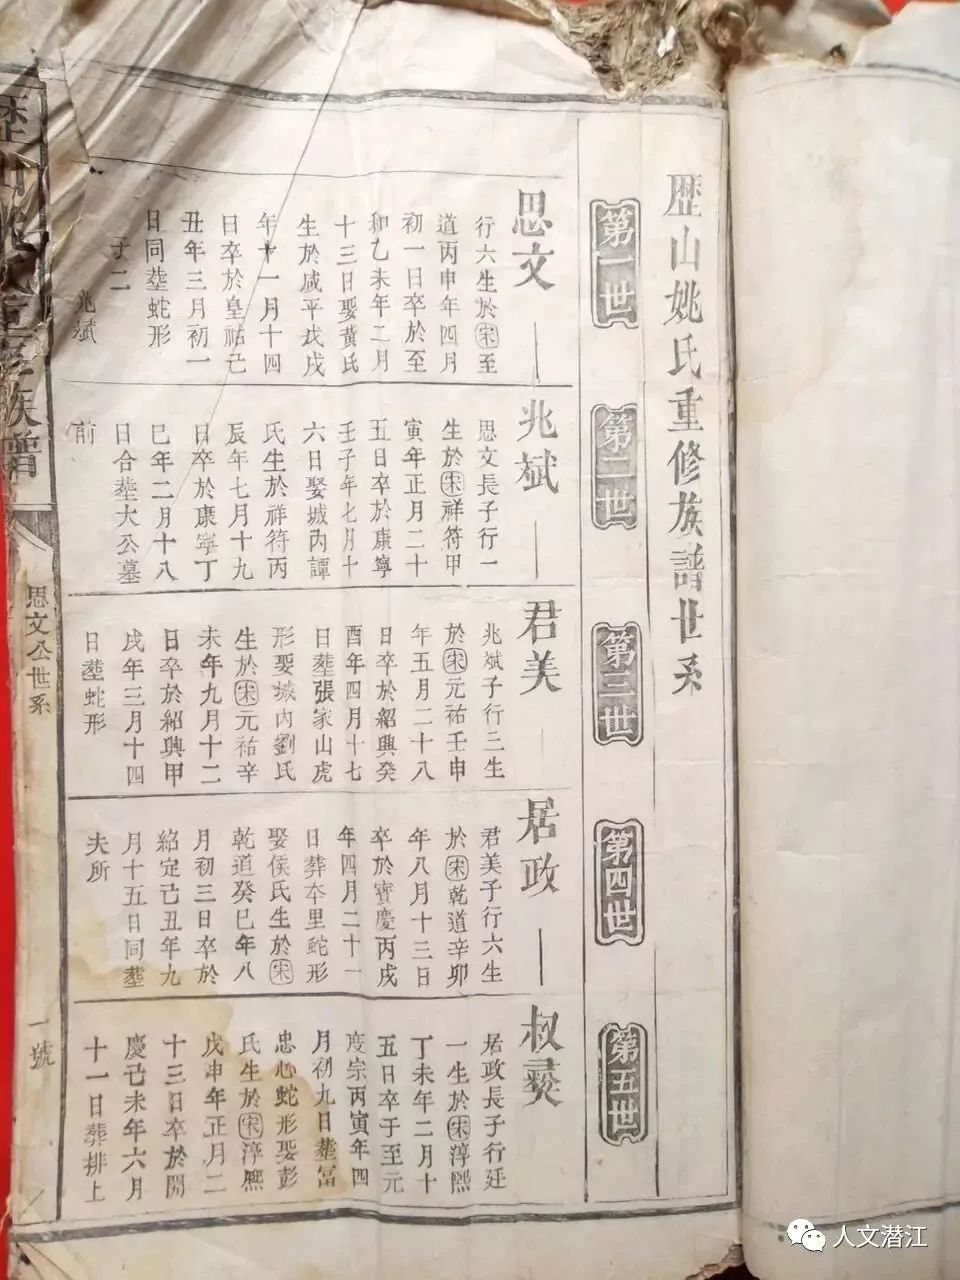 歷山姚氏重修族譜世系
第一世
第二世
第三世
第四世
第五世
思文
行六生於宋至
道丙申年四月
初一日卒於至
和乙未年二月
十三日娶黃氏
生於咸平戊戌
年十一月十四
日卒於皇祐己
丑年三月初一
日同塟蛇形
子二
兆斌
兆斌
思文長子行一
生於宋祥符甲
寅年正月二十
五日卒於康寧
壬子年七月十
六日娶城內譚
氏生於祥符丙
辰年七月十九
日卒於康寧丁
巳年二月十八
日合塟大公墓
前
君美
兆斌子行三生
於宋元祐壬申
年五月二十八
日卒於紹興癸
酉年四月十七
日塟張家山虎
形娶城內劉氏
生於宋元祐辛
未年九月十二
日卒於紹興甲
戌年三月十四
日塟蛇形
居政
君美子行六生
於宋乾道辛卯
年八月十三日
卒於寶慶丙戌
年四月二十一
日葬本里蛇形
娶侯氏生於宋
乾道癸巳年八
月初三日卒於
紹定己丑年九
月十五日同塟
夫所
叔彝
居政長子行廷
一生於宋淳熙
丁未年二月十
五日卒于至元
度宗丙寅年四
月初九日塟冨
忠心蛇形娶彭
氏生於宋淳熙
戊申年正月二
十三日卒於開
慶己未年六月
十一日葬排上
族譜
思文公世系
一號
人文潜江